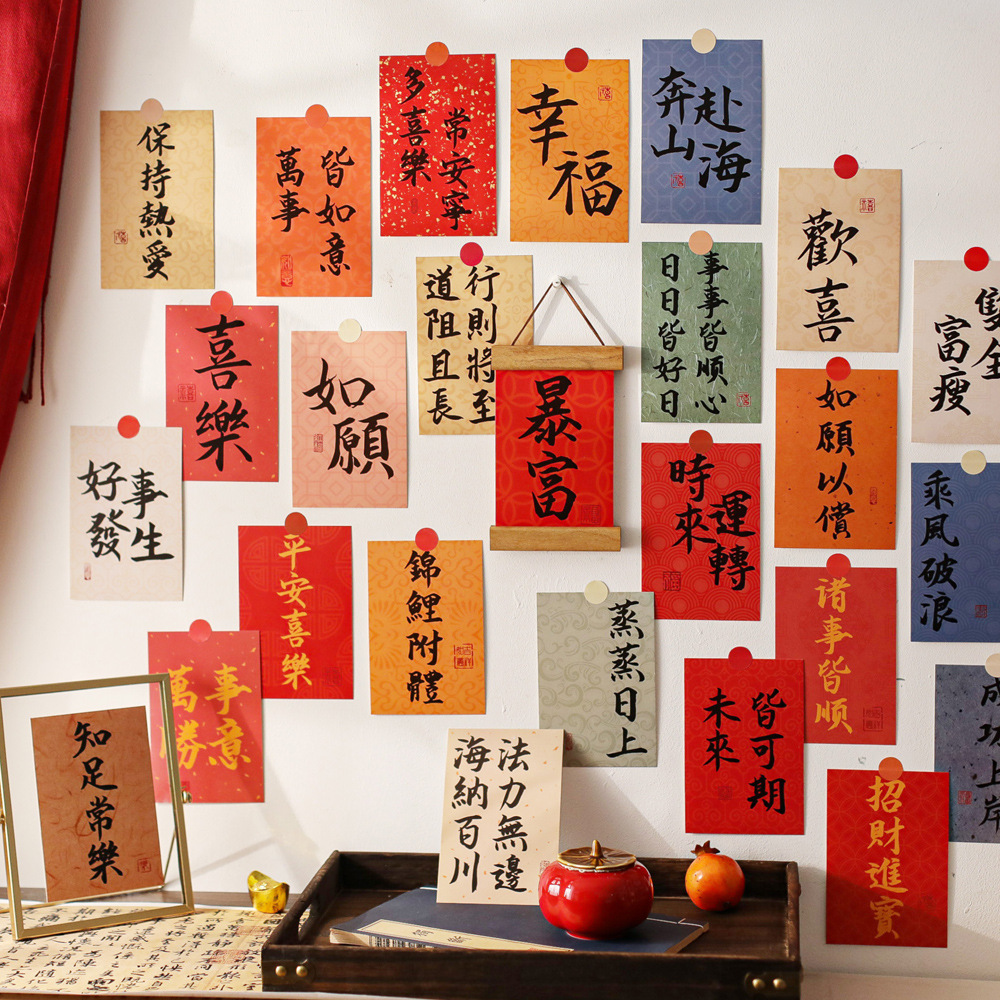 保持熱愛
萬事
皆如意
多喜樂
常安寧
幸福
奔山
赴海
歡喜
富瘦
雙全
喜樂
如願
道阻且長
行則將至
暴富
日日皆好日
事事皆順心
如願以償
乘風破浪
好事
發生
平安喜樂
錦鯉附體
時來
運轉
諸事皆順
萬事
勝意
蒸蒸日上
未來
皆可期
成功上岸
知足常樂
海納百川
法力無邊
招財進寶